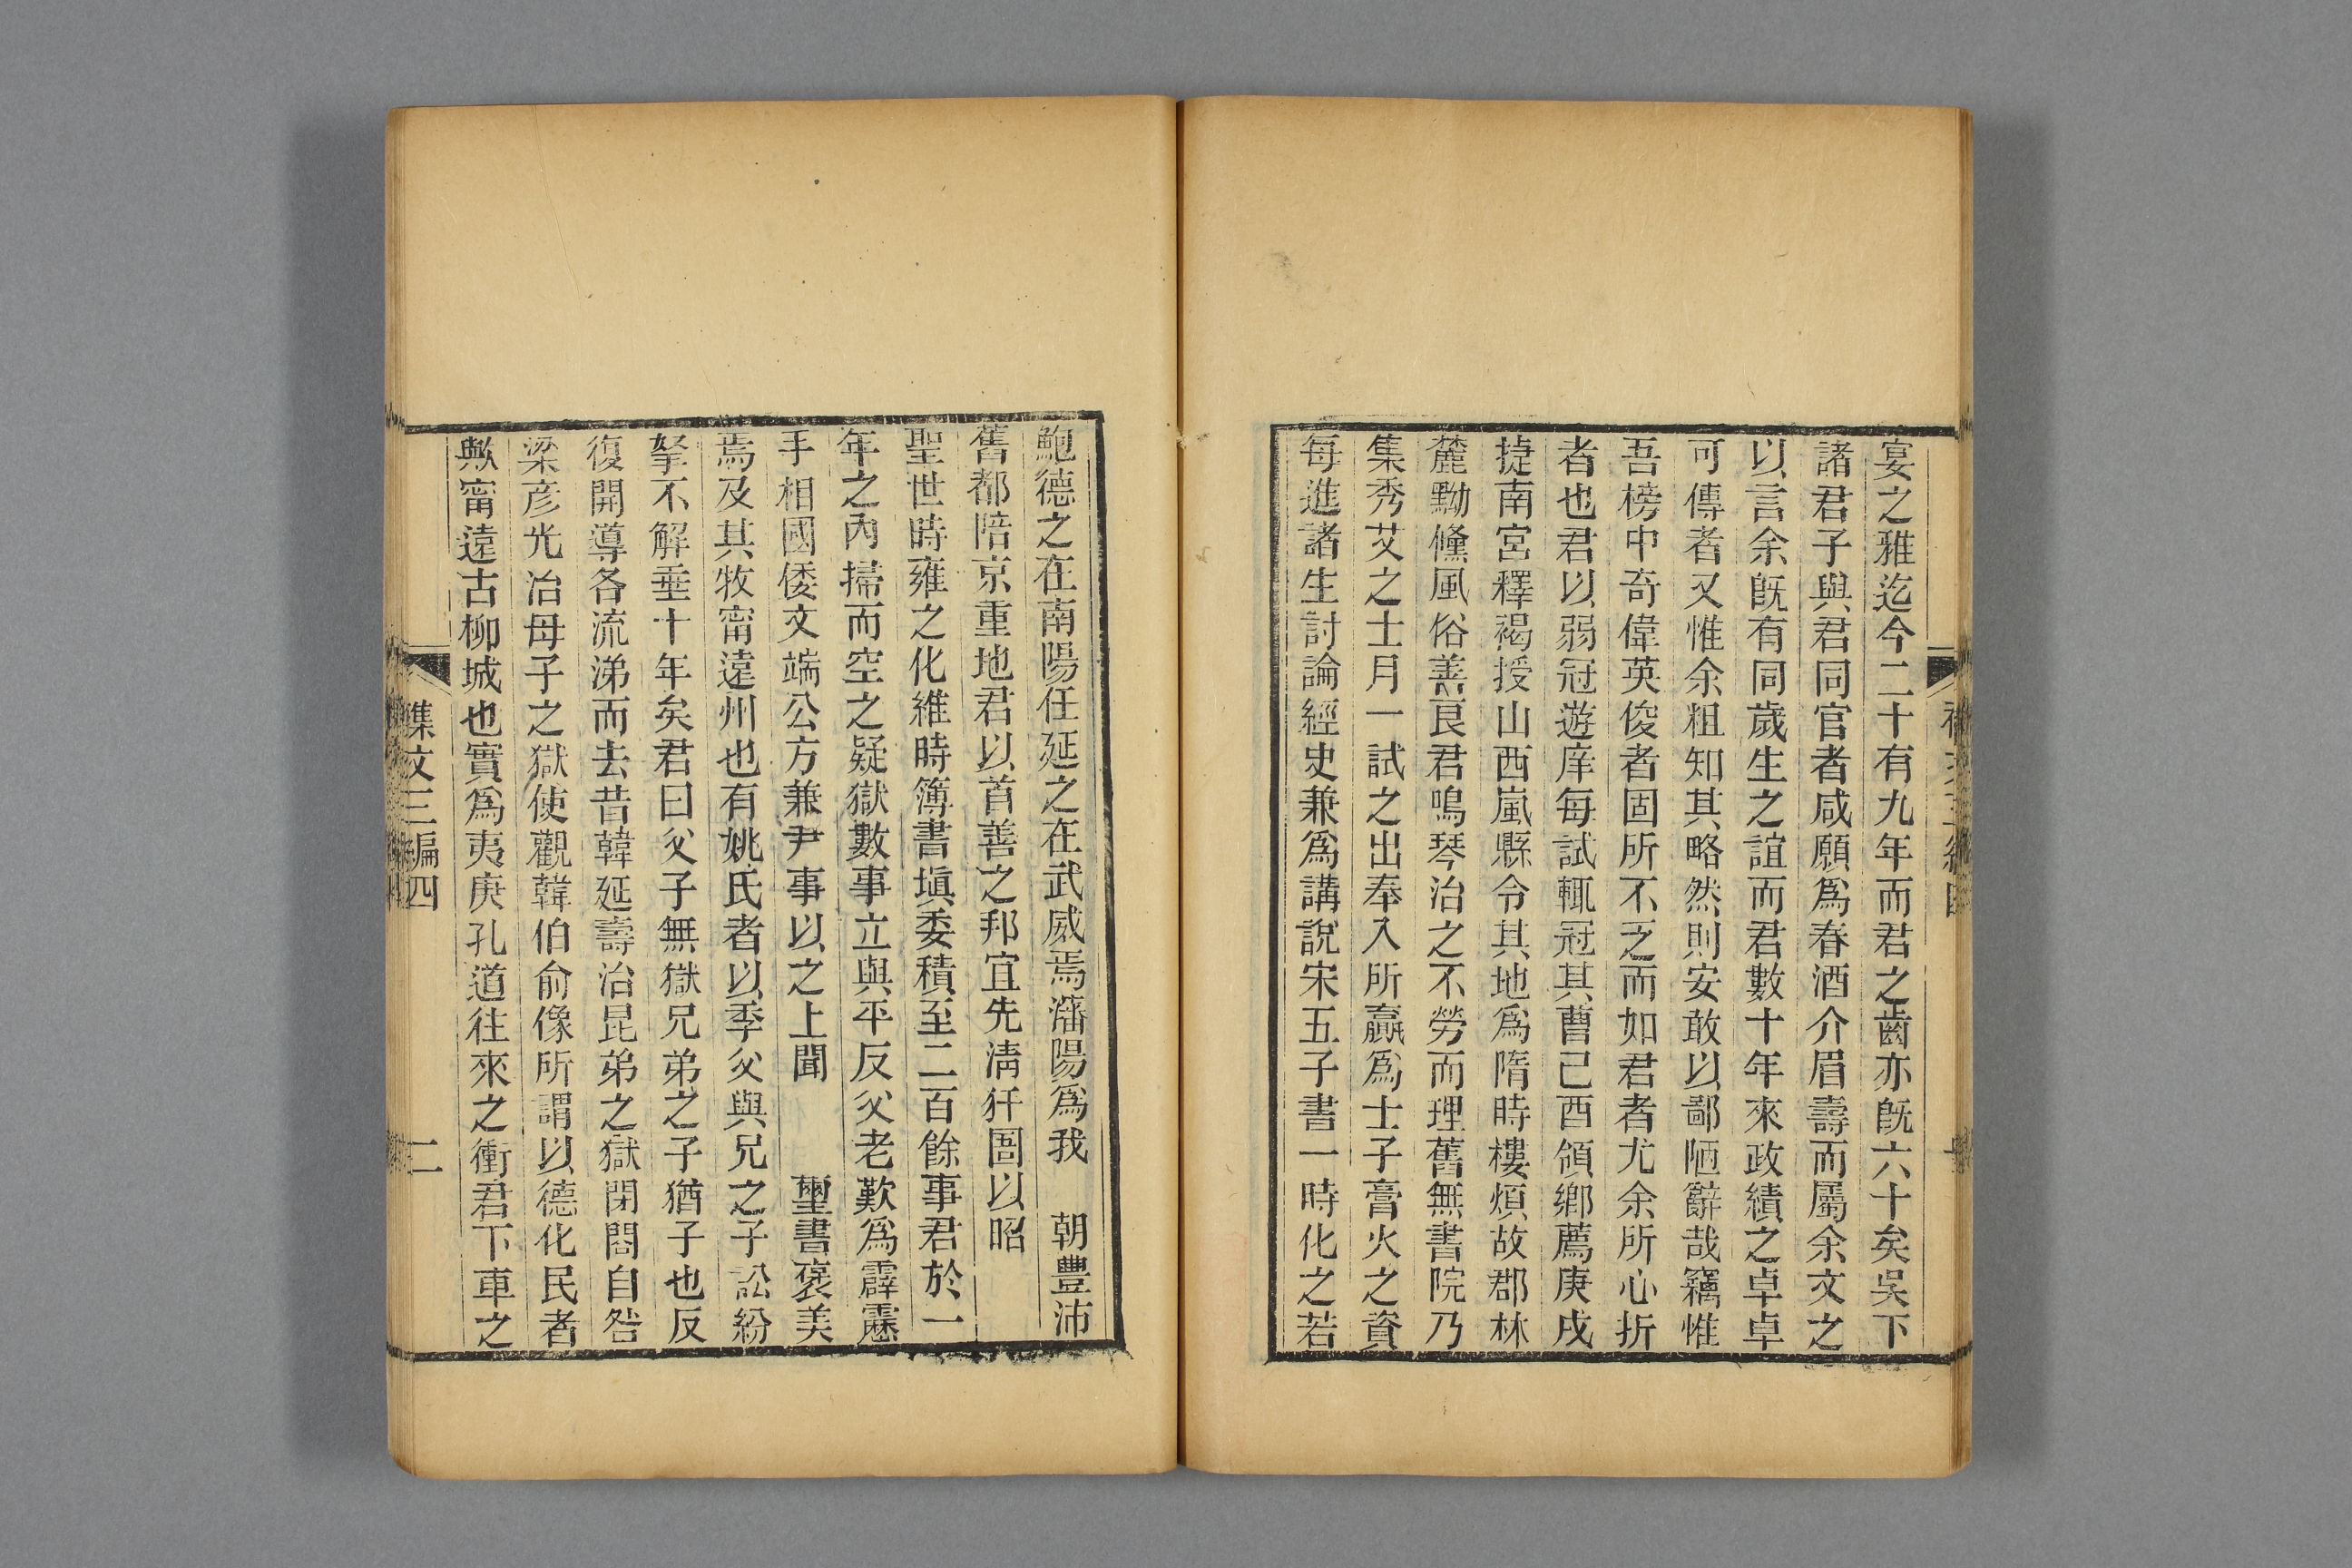 宴之雅迄今二十有九年而君之齒亦旣六十矣吳下
諸君子與君同官者咸願爲春酒介眉壽而屬余文之
以言余旣有同歲生之誼而君數十年來政績之卓卓
可傳者又惟余粗知其略然則安敢以鄙陋辭哉竊惟
吾榜中奇偉英俊者固所不乏而如君者尤余所心折
者也君以弱冠遊庠每試輒冠其曹己酉領鄉薦庚戌
捷南宮釋褐授山西嵐縣令其地爲隋時樓煩故郡林
麓黝儵風俗善良君鳴琴治之不勞而理舊無書院乃
集秀艾之士月一試之出奉入所贏爲士子膏火之資
每進諸生討論經史兼爲講說宋五子書一時化之若
鮑德之在南陽任延之在武威焉瀋陽爲我 朝豐沛
舊都陪京重地君以首善之邦宜先淸犴圄以昭
聖世時雍之化維時簿書塡委積至二百餘事君於一
年之內掃而空之疑獄數事立與平反父老歎爲霹靂
手相國倭文端公方兼尹事以之上聞 璽書褒美
焉及其牧甯遠州也有姚氏者以季父與兄之子訟紛
拏不解垂十年矣君曰父子無獄兄弟之子猶子也反
復開導各流涕而去昔韓延壽治昆弟之獄閉閤自咎
梁彥光治母子之獄使觀韓伯俞像所謂以德化民者
歟甯遠古柳城也實爲夷庚孔道往來之衝君下車之
集文三編四
二